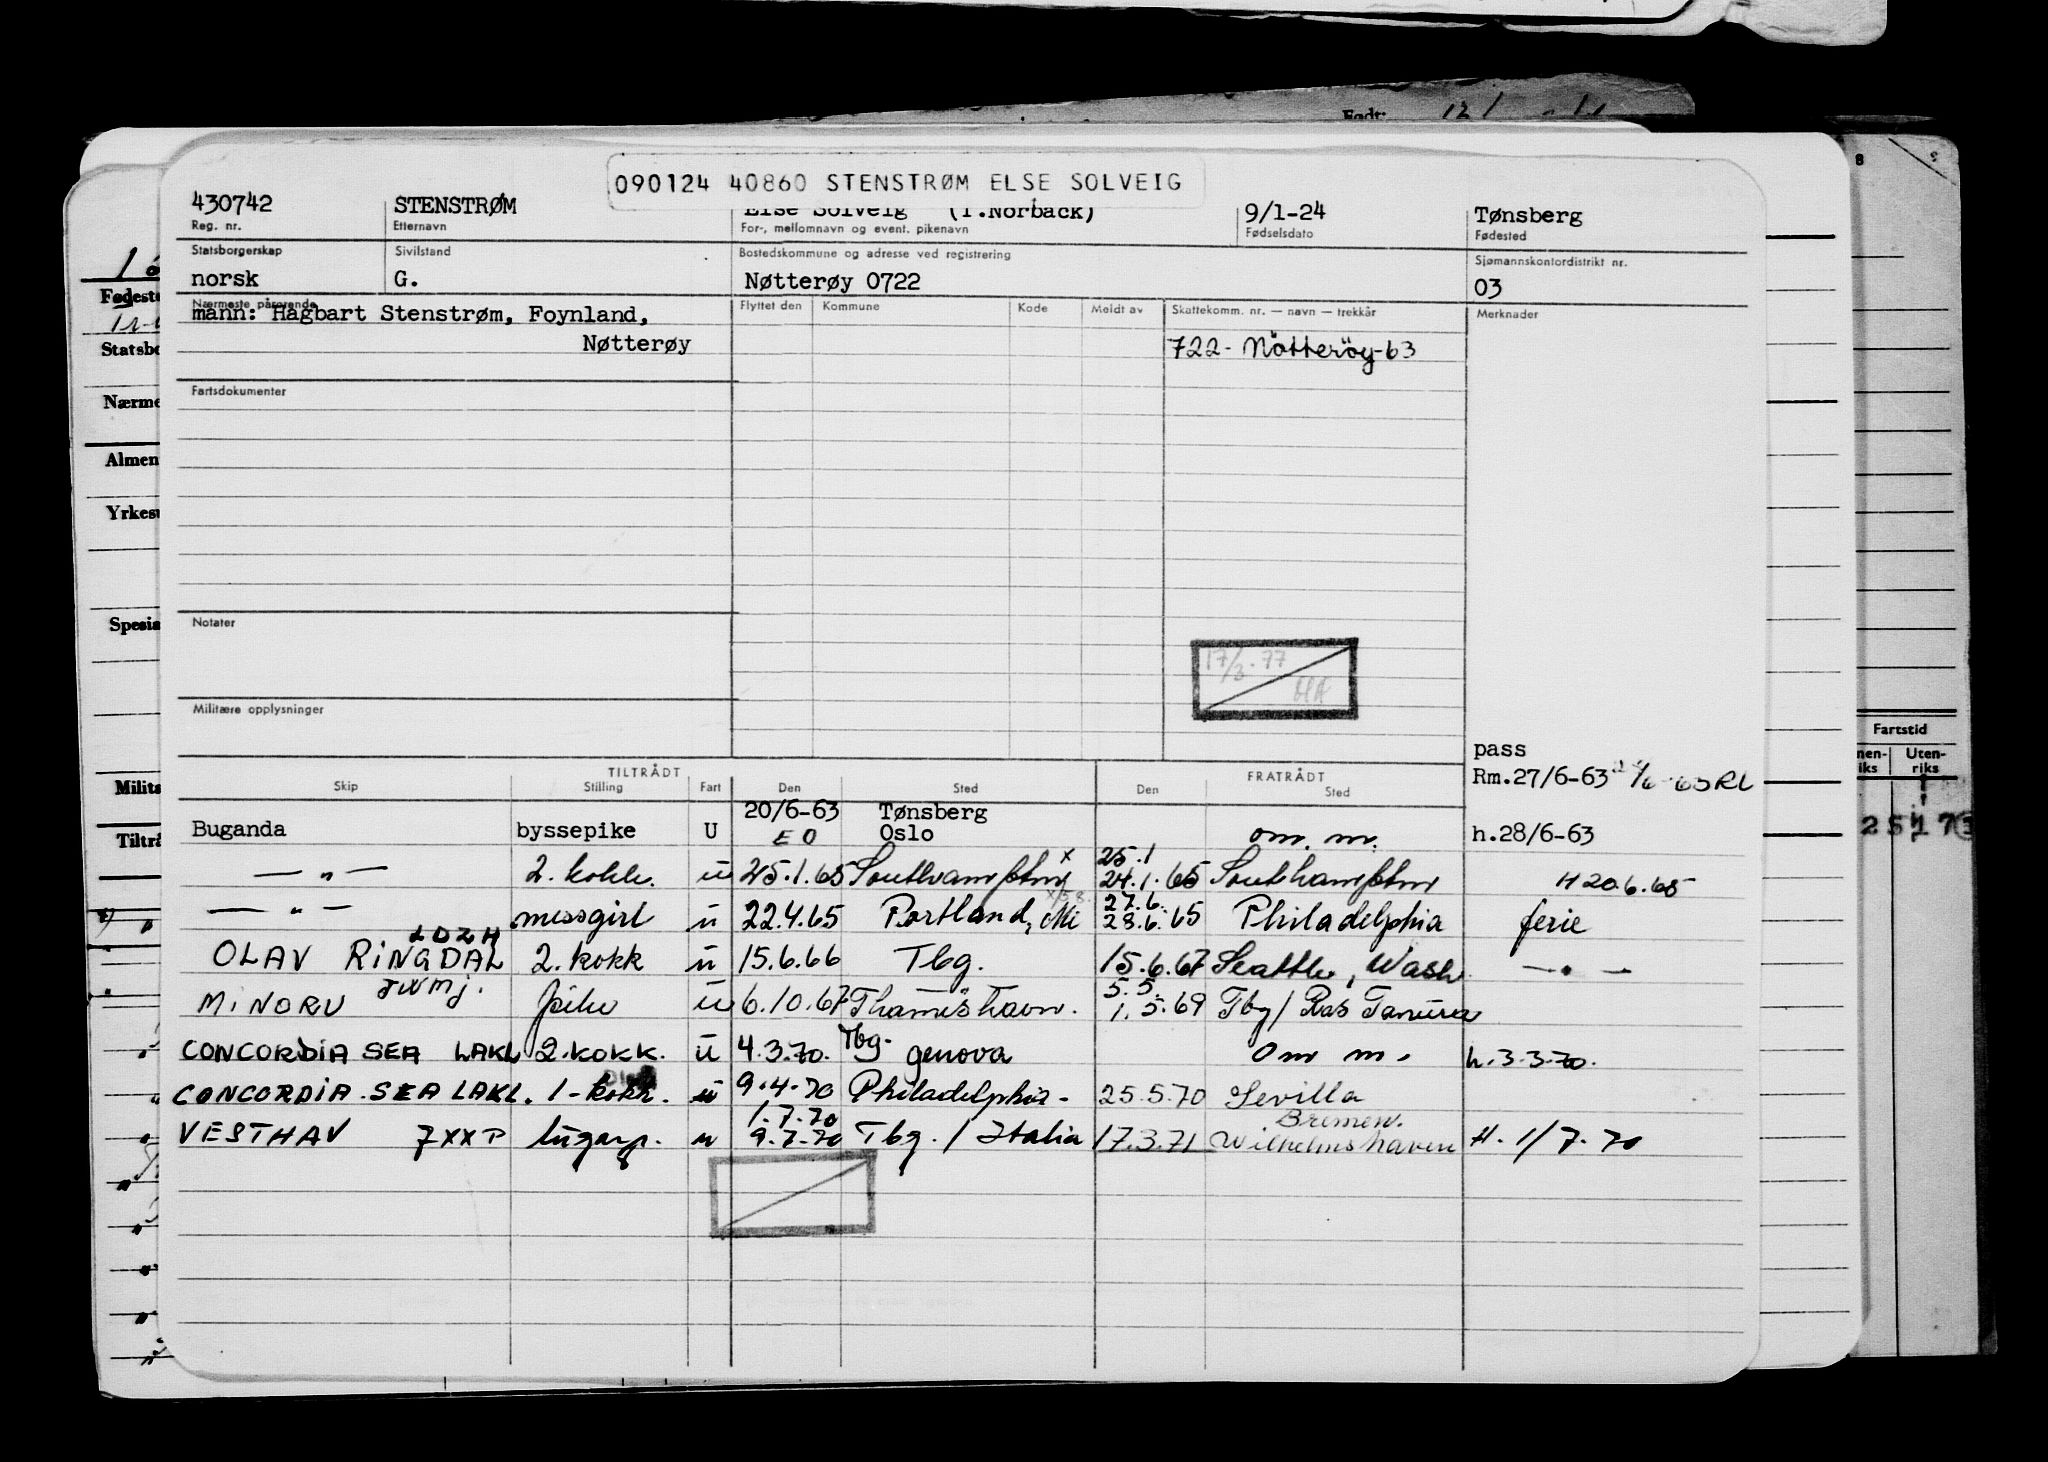 Født:
090124 40860 STENSTRØM ELSE SOLVEIG
430742 STENSTRØM Else Solveig (f.Norbäck) 9/1-24 Tønsberg
Reg. nr. Etternavn For-, mellomnavn og event. pikenavn Fødselsdato Fødested
Statsborgerskap Sivilstand Bostedskommune og adresse ved registrering Sjømannskontordistrikt nr.
norsk G. Nøtterøy 0722 03
Nærmeste pårørende Flyttet den Kommune Kode Meldt av Skattekomm. nr. — navn — trekkår Merknader
mann: Hagbart Stenstrøm, Foynland,
Nøtterøy 722- Nötteröy-63
Fartsdokumenter
Notater
17/3-77
HA
Militære opplysninger
pass
TILTRÅDT FRATRÅDT Rm.27/6-63 63 RL
Skip Stilling Fart Den Sted Den Sted
20/6-63 Tønsberg
Buganda byssepike U EO Oslo om. m. h.28/6-63
25.1
— " — 2. kokk. u 25.1.65 Southampton x 24.1.65 Southampton H 20.6.65
27.6.
— " — messgirl u 22.4.65 Portland, Me 28.6.65 Philadelphia ferie
LDZH
OLAV RINGDAL 2. kokk u 15.6.66 Tbg. 15.6.67 Seattle, Wash — " —
JXMJ. 5.5.
MINORU pike u 6.10.67 Thamshavn. 1.5.69 Tbg/ Ras Tanura
CONCORDIA SEA LAKL 2. KOKK. u 4.3.70. Tbg. genova Om m. h.3-3-70.
CONCORDIA SEA LAKL. 1-kokk. u 9.4.70 Philadelphia - 25.5.70 Sevilla
1.7.70 Bremen.
VESTHAV 7XXP lugarp. u 9.7.70 Tbg. / Italia 17.3.71 Wilhelmshaven H. 1/7-70
Fartstid
Uten-
riks